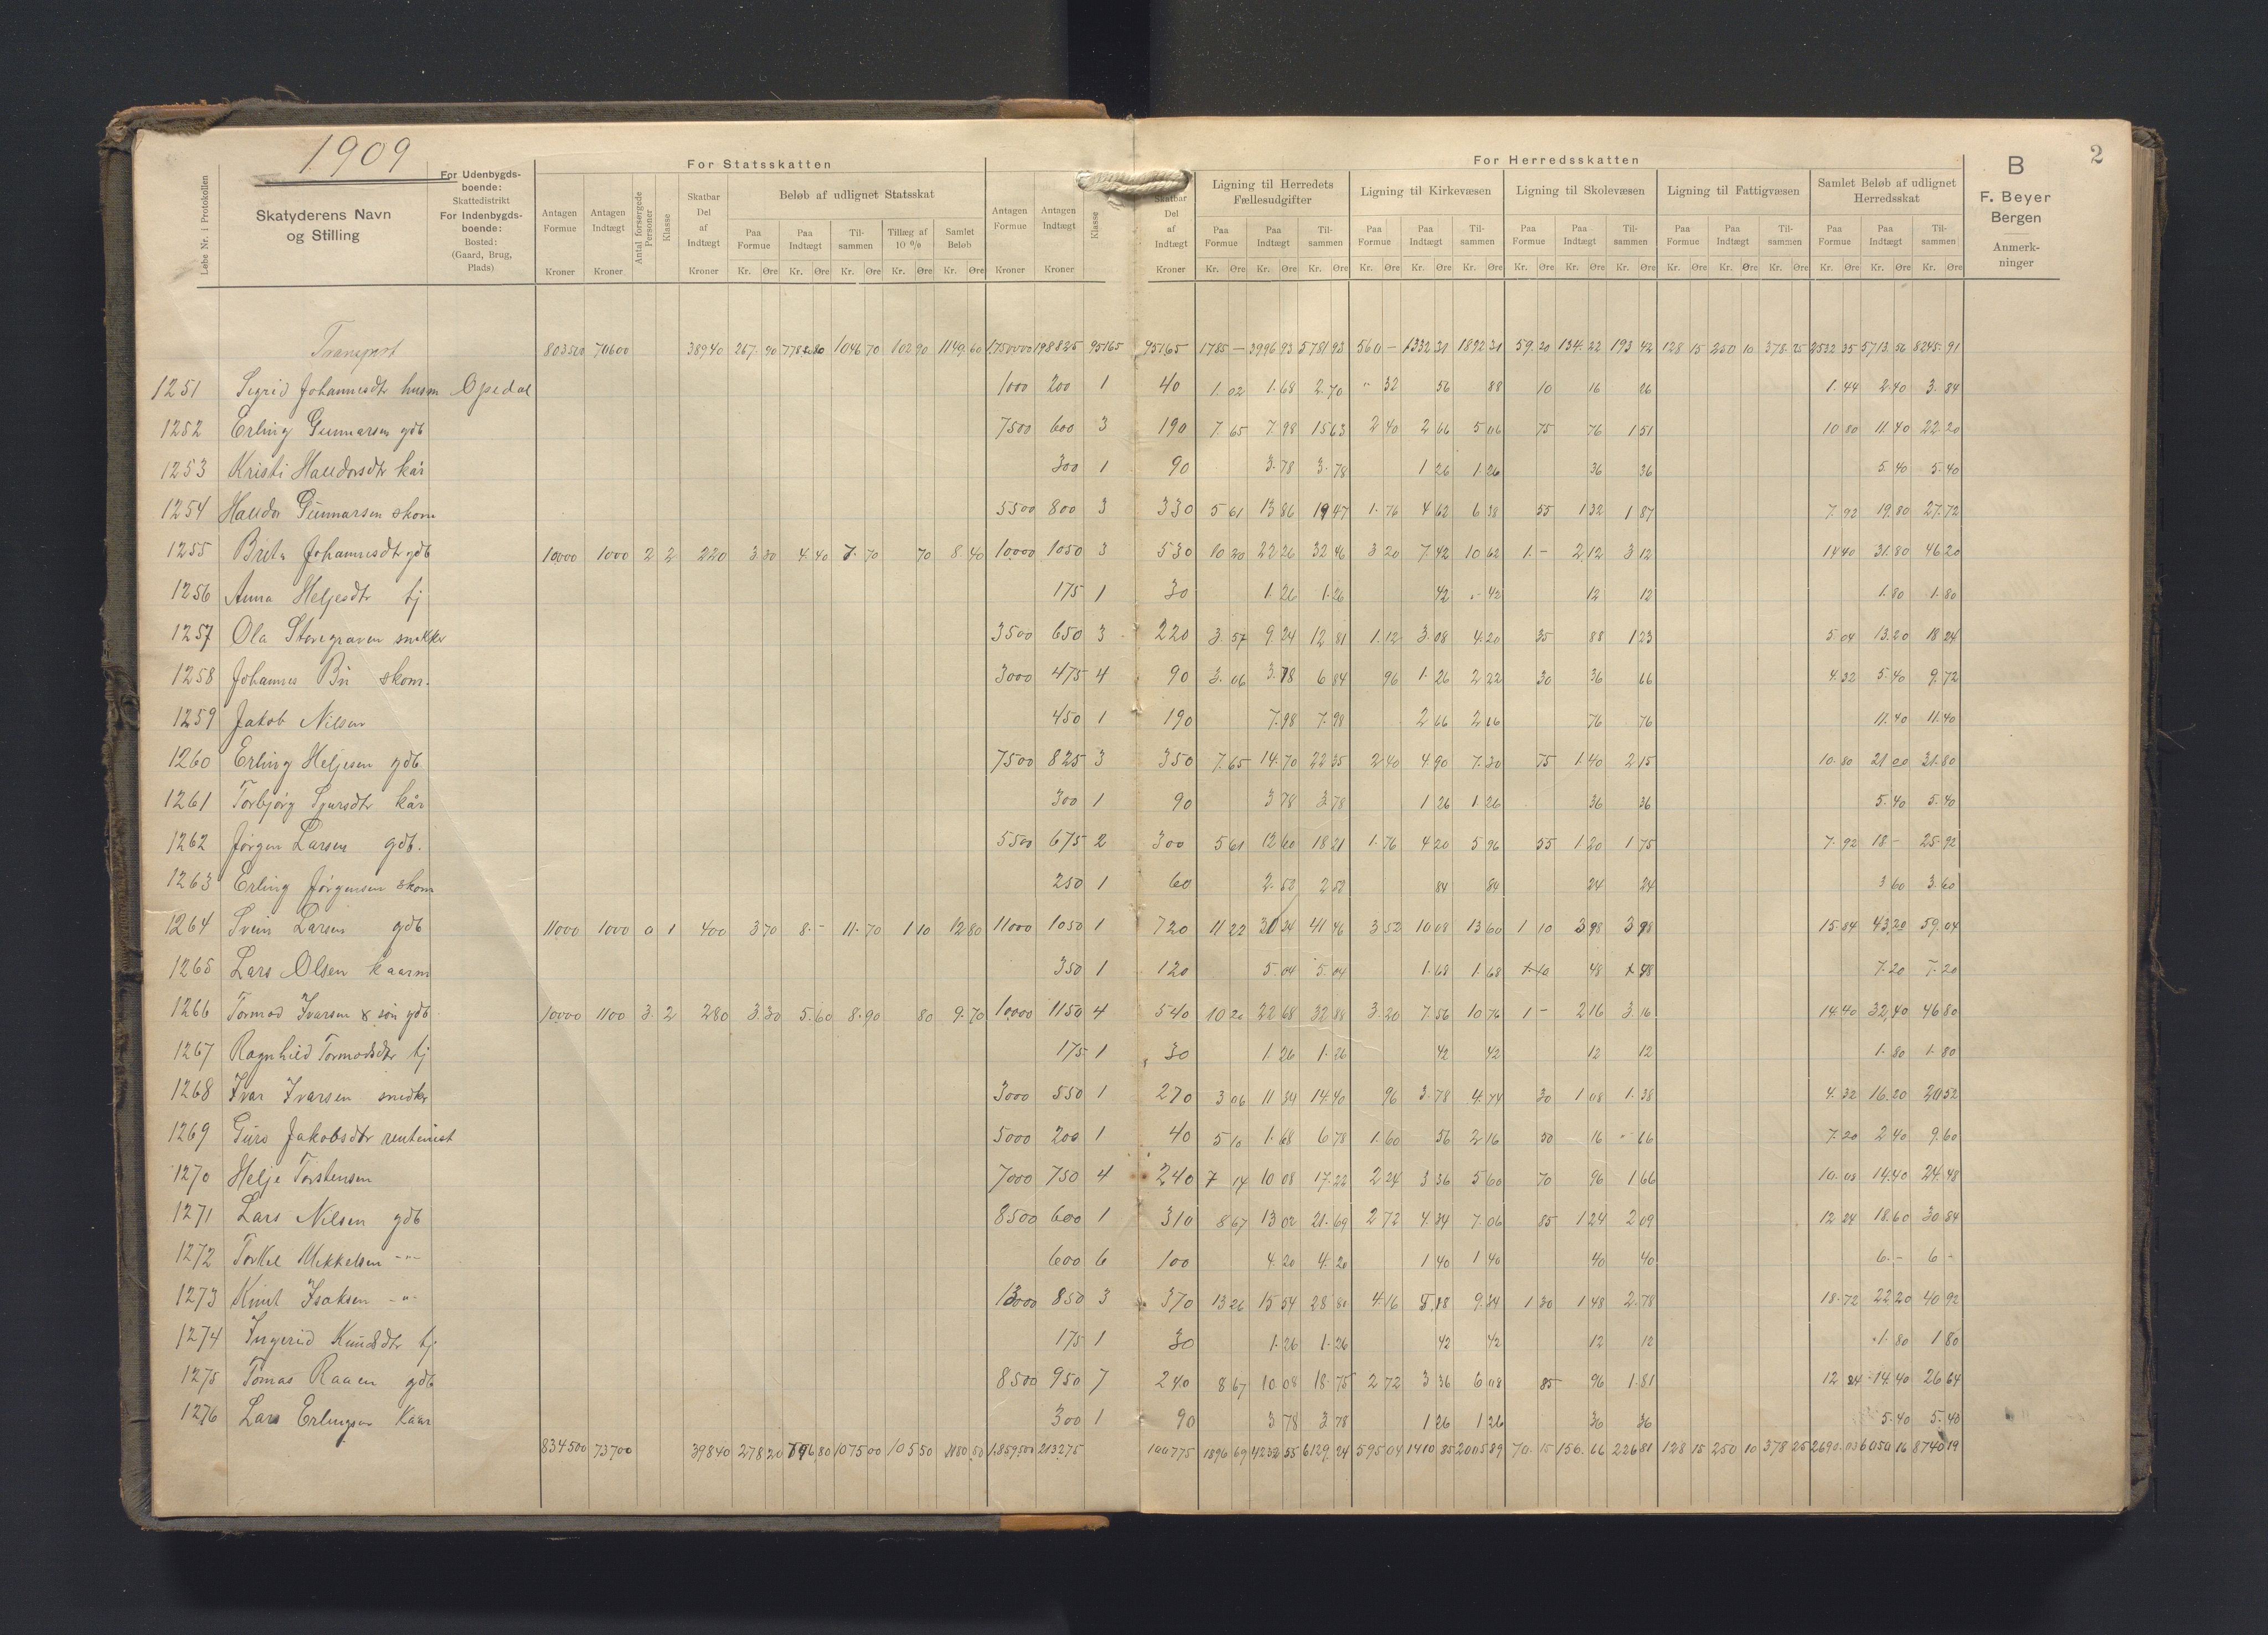 1909
2
For Statsskatten
For Herredsskatten
B
F. Beyer
Bergen
Anmerkninger
Løbe Nr. i Protokollen
Skatyderens Navn og Stilling
For Udenbygdsboende: Skattedistrikt
For Indenbygdsboende: Bosted: (Gaard, Brug, Plads)
Antagen Formue Kroner
Antagen Indtægt Kroner
Antal forsørgede Personer
Klasse
Skatbar Del af Indtægt Kroner
Beløb af udlignet Statsskat
Paa Formue Kr. Øre
Paa Indtægt Kr. Øre
Tilsammen Kr. Øre
Tillæg af 10 % Kr. Øre
Samlet Beløb Kr. Øre
Antagen Formue Kroner
Antagen Indtægt Kroner
Klasse
Skatbar Del af Indtægt Kroner
Ligning til Herredets Fællesudgifter
Paa Formue Kr. Øre Paa Indtægt Kr. Øre Tilsammen Kr. Øre
Ligning til Kirkevæsen
Paa Formue Kr. Øre Paa Indtægt Kr. Øre Tilsammen Kr. Øre
Ligning til Skolevæsen
Paa Formue Kr. Øre Paa Indtægt Kr. Øre Tilsammen Kr. Øre
Ligning til Fattigvæsen
Paa Formue Kr. Øre Paa Indtægt Kr. Øre Tilsammen Kr. Øre
Samlet Beløb af udlignet Herredsskat
Paa Formue Kr. Øre Paa Indtægt Kr. Øre Tilsammen Kr. Øre
Transport 803500 70600 38940 267.90 778.80 1046 70 102 90 1149.60 1750000 198825 95165 95165 1785 - 3996 93 5781 93 560 - 1332 31 1892 31 59.20 134.22 193 42 128 15 250 10 378.25 2532 35 5713.56 8245.91
1251 Sigrid Johannesdtr husm Opedal 1000 200 1 40 1.02 1.68 2.70 " 32 56 88 10 16 26 1.44 2.40 3.84
1252 Erling Gunnarsen gdb 7500 600 3 190 7.65 7.98 15 63 2 40 2 66 5 06 75 76 1 51 10 80 11.40 22.20
1253 Kristi Halldorsdtr kår 300 1 90 3.78 3.78 1 26 1.26 36 36 5.40 5.40
1254 Halldor Gunnarsen skom 5500 800 3 330 5 61 13 86 19 47 1.76 4 62 6 38 55 1 32 1 87 7.92 19.80 27.72
1255 Brita Johannesdtr gdb 10000 1000 2 2 220 3.30 4.40 7.70 70 8.40 10000 1050 3 530 10 20 22 26 32 46 3 20 7.42 10 62 1.- 2.12 3 12 14 40 31.80 46 20
1256 Anna Heljesdtr tj 175 1 30 1.26 1.26 42 42 12 12 1.80 1.80
1257 Ola Storegraven snekker 3500 650 3 220 3.57 9 24 12 81 1.12 3.08 4.20 35 88 1 23 5 04 13.20 18 24
1258 Johannes Bu skom. 3000 475 4 90 3.06 3.78 6 84 96 1.26 2 22 30 36 66 4.32 5.40 9.72
1259 Jakob Nilsen 450 1 190 7.98 7.98 2 66 2 66 76 76 11.40 11.40
1260 Erling Heljesen gdb. 7500 825 3 350 7.65 14.70 22 35 2 40 4 90 7.30 75 1.40 2 15 10.80 21 00 31.80
1261 Torbjørg Sjursdtr kår 300 1 90 3 78 3.78 1 26 1.26 36 36 5.40 5.40
1262 Jørgen Larsen gdb. 5500 675 2 300 5 61 12 60 18 21 1.76 4 20 5 96 55 1 20 1 75 7.92 18 - 25.92
1263 Erling Jørgensen skom 250 1 60 2.52 2 52 84 84 24 24 3 60 3.60
1264 Svein Larsen gdb 11000 1000 0 1 400 3 70 8.- 11.70 1 10 12 80 11000 1050 1 720 11 22 30 24 41 46 3 52 10 08 13 60 1 10 3 98 15.84 43.20 59.04
1265 Lars Olsen kaarm 350 1 120 5.04 5.04 1.68 1.68 48 48 7.20 7.20
1266 Tormod Ivarsen & søn gdb 10000 1100 3 2 280 3.30 5.60 8.90 80 9.70 10000 1150 4 540 10 20 22 68 32 88 3.20 7.56 10 76 1 - 2 16 3.16 14.40 32.40 46 80
1267 Ragnhild Tormodsdtr tj 175 1 30 1.26 1.26 42 42 12 12 1.80 1.80
1268 Ivar Ivarsen snedker 3000 550 1 270 3 06 11 34 14.40 96 3.78 4.74 30 1 08 1.38 4.32 16.20 20 52
1269 Guro Jakobsdtr rentenist 5000 200 1 40 5 10 1.68 6 78 1.60 56 2 16 50 16 66 7.20 2 40 9.60
1270 Helje Torstensen 7000 750 4 240 7 14 10 08 17.22 2 24 3 36 5 60 70 96 1 66 10.08 14.40 24.48
1271 Lars Nilsen gdb 8500 600 1 310 8 67 13 02 21.69 2 72 4.34 7.06 85 1 24 2 09 12 24 18.60 30 84
1272 Torkel Mikkelsen -"- 600 6 100 4.20 4.20 1 40 1 40 40 40 6.- 6 -
1273 Knut Isaksen -"- 13000 850 3 370 13 26 15 54 28 80 4.16 5.18 9.34 1 30 1 48 2.78 18.72 22 20 40 92
1274 Ingerid Knudsdtr tj 175 1 30 1.26 1.26 42 42 12 12 1.80 1 80
1275 Tomas Raaen gdb 8500 950 7 240 8 67 10 08 18.75 2 72 3 36 6 08 85 96 1.81 12 24 14.40 26 64
1276 Lars Erlingsen Kaar 300 1 90 3 78 3 78 1 26 1 26 36 36 5.40 5.40
834500 73700 39840 278 20 796.80 1075 00 105 50 1180.50 1,859,500 213275 100775 1896 69 4232 55 6129.24 595 04 1410 85 2005 89 70.15 156.66 226 81 128 15 250 10 378 25 2690.03 6050 16 8740 19